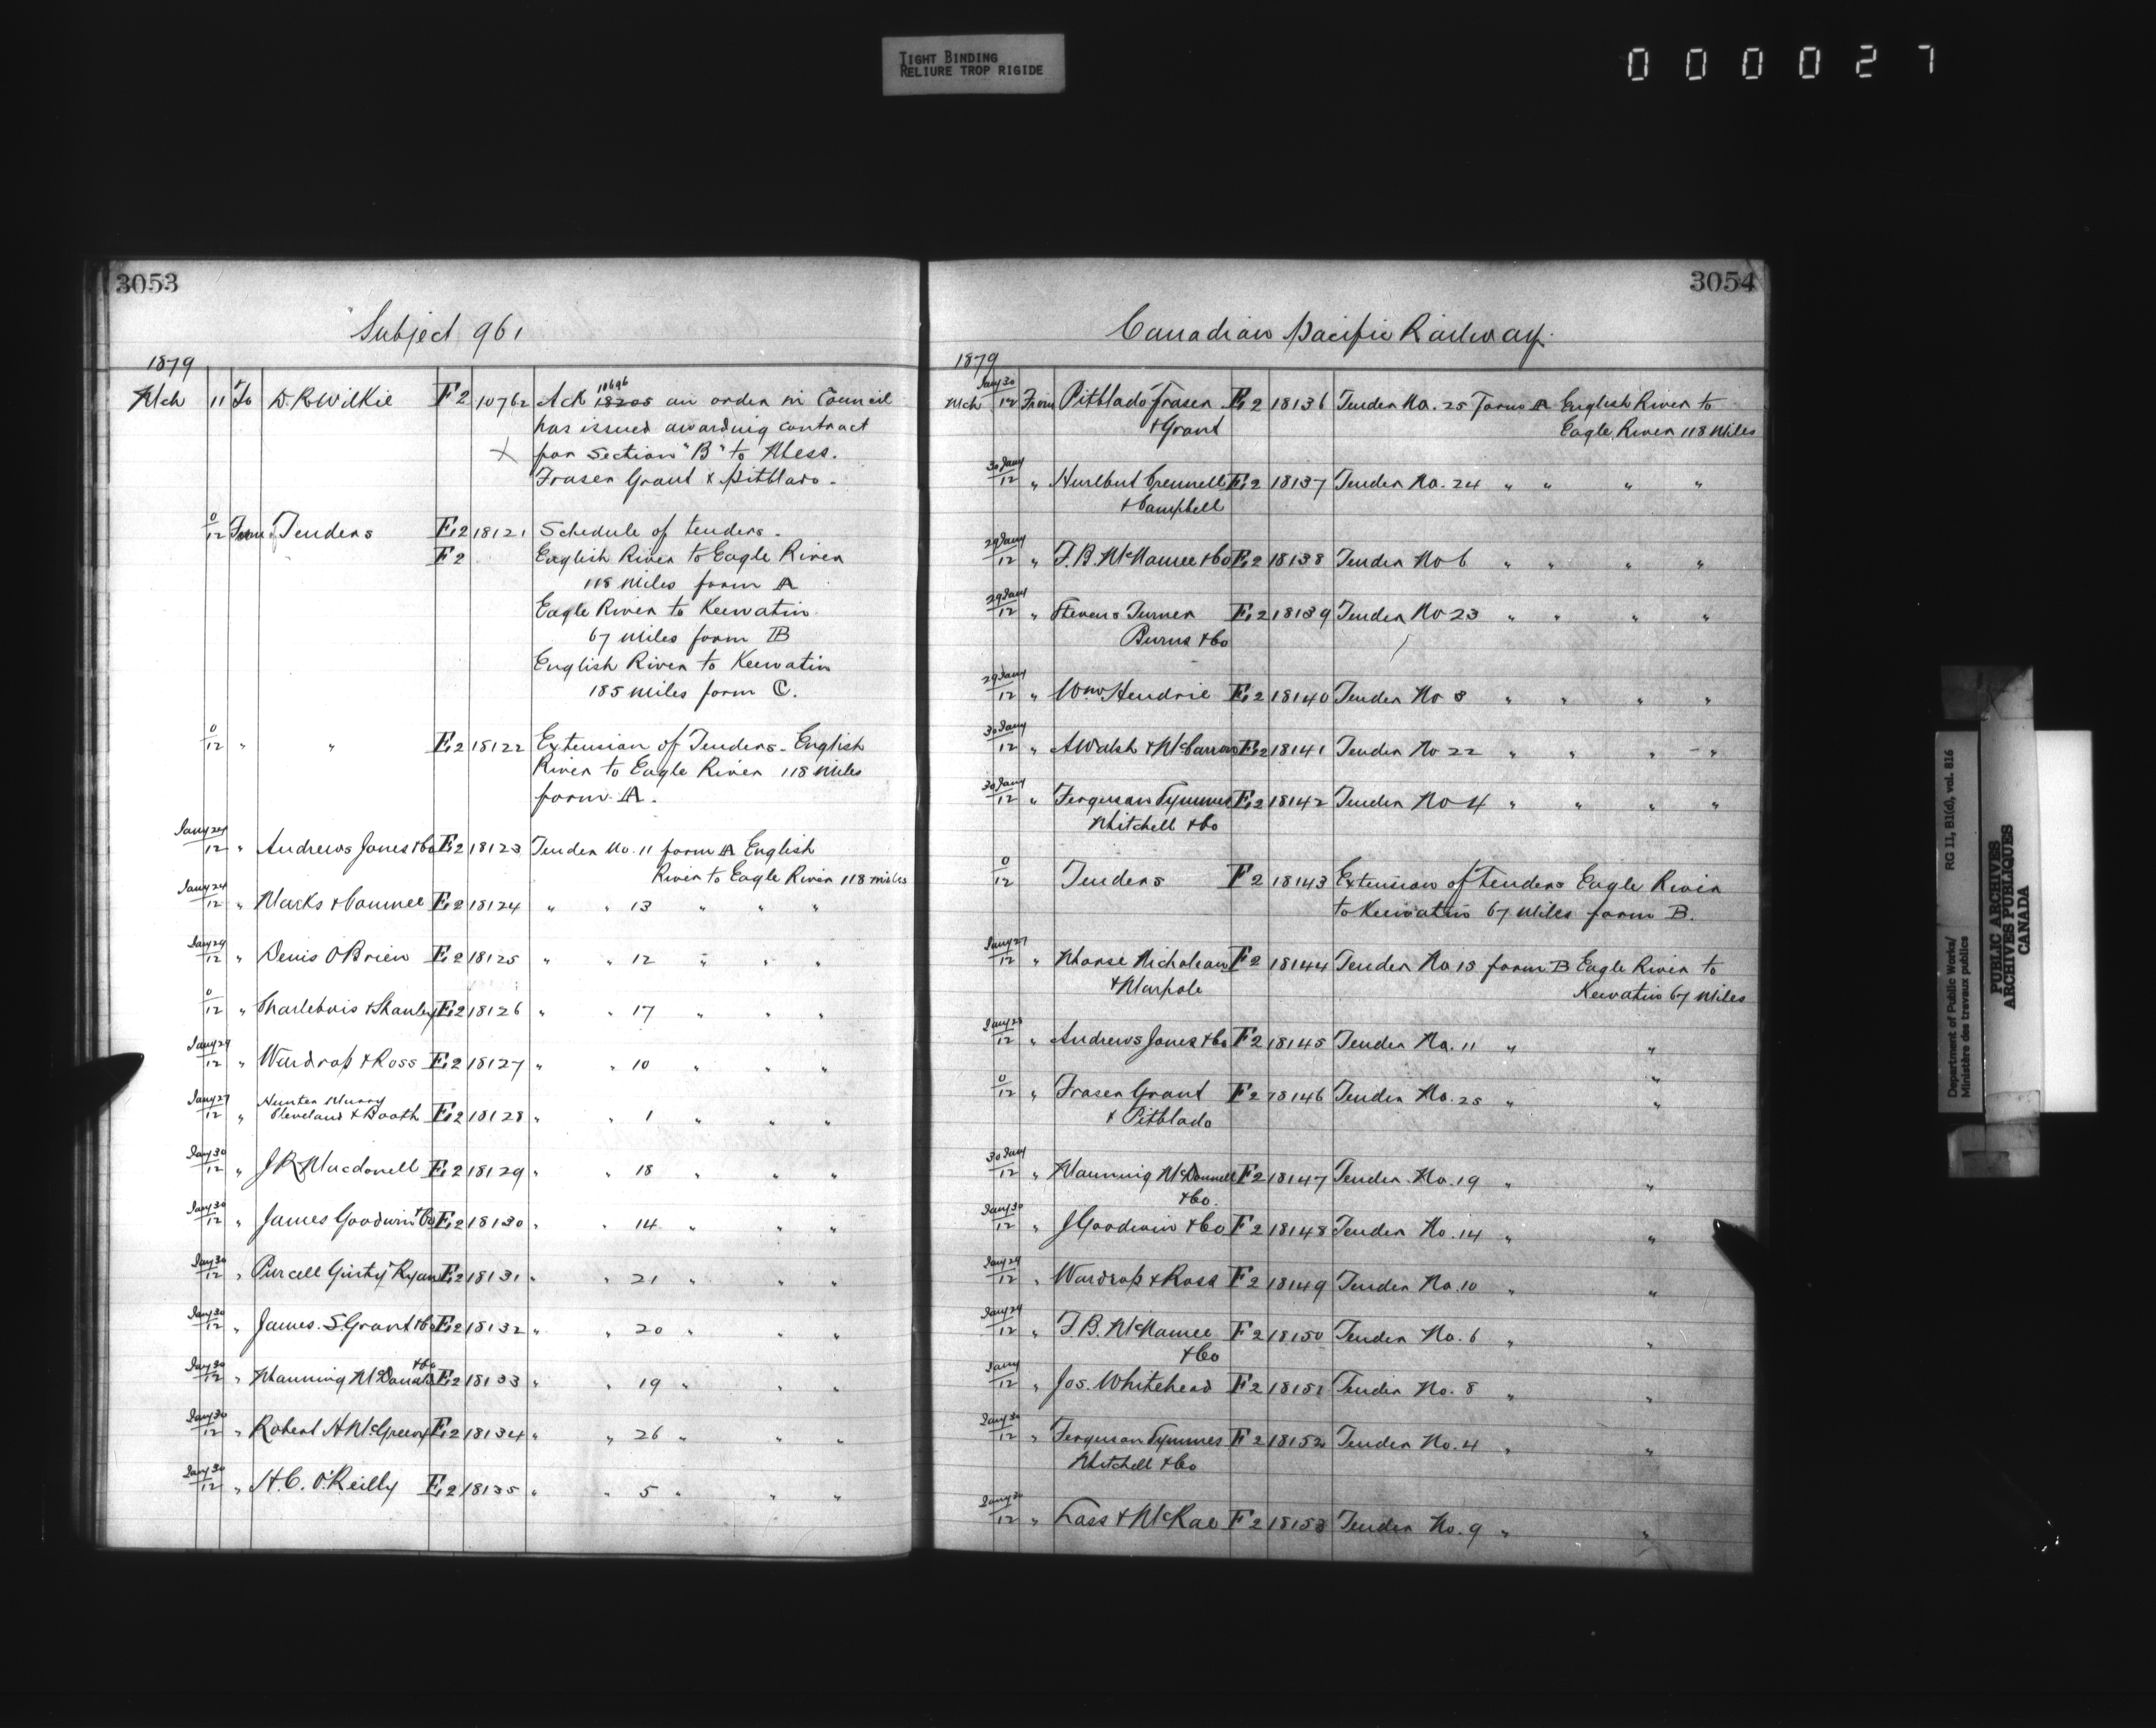 TIGHT BINDING
RELIURE TROP RIGIDE
000027
3053
Subject 961
1879
Mch 11 To D R Wilkie F 2 10762 Ack 18205 10696 an order in Council
has issued awarding contract
X for Section "B" to Mess.
Fraser Grant & Pitblado.
0/12 From Tenders F.2 18121 Schedule of tenders.
F 2 English River to Eagle River
118 Miles form A
Eagle River to Keewatin
67 Miles form B
English River to Keewatin
185 Miles form C.
0/12 " " F.2 18122 Extension of Tenders - English
River to Eagle River 118 Miles
form A.
Jany 24/12 " Andrews Jones & Co F.2 18123 Tender No. 11 form A English
River to Eagle River 118 miles
Jany 24/12 " Marks & Conmee F.2 18124 " " 13 " " "
Jany 29/12 " Denis O'Brien F.2 18125 " " 12 " " "
0/12 " Charlebois & Shanly F.2 18126 " " 17 " " "
Jany 29/12 " Wardrop & Ross F.2 18127 " " 10 " " "
Jany 27/12 " Hunter Murray
Cleveland & Booth F.2 18128 " " 1 " " "
Jany 30/12 " J R Macdonell F.2 18129 " " 18 " " "
Jany 30/12 " James Goodwin & Co F.2 18130 " " 14 " " "
Jany 30/12 " Purcell Ginty Ryan F.2 18131 " " 21 " " "
Jany 30/12 " James. S. Grant & Co F.2 18132 " " 20 " " "
Jany 30/12 " Manning McDonald & Co F.2 18133 " " 19 " " "
Jany 30/12 " Robert H McGreevy F.2 18134 " " 26 " " "
Jany 30/12 " H. C. O'Reilly F.2 18135 " " 5 " " "
3054
Canadian Pacific Railway.
1879
Mch Jany 30/12 From Pitblado Fraser F.2 18136 Tender No. 25 Form A English River to
& Grant Eagle River 118 Miles
30 Jany/12 " Hurlbut Crennell F.2 18137 Tender No. 24 " " " "
& Campbell
29 Jany/12 " F. B. McNamee & Co F.2 18138 Tender No 6 " " " "
29 Jany/12 " Stevens Turner F.2 18139 Tender No 23 " " " "
Burns & Co
29 Jany/12 " Wm Hendrie F.2 18140 Tender No 3 " " " "
30 Jany/12 " A Walsh & McCarron F.2 18141 Tender No 22 " " " "
30 Jany/12 " Ferguson Symmes F.2 18142 Tender No 4 " " " "
Mitchell & Co
0/12 Tenders F 2 18143 Extension of Tenders Eagle River
to Keewatin 67 Miles form B.
Jany 27/12 " Morse Nicholson F 2 18144 Tender No 15 form B Eagle River to
& Marpole Keewatin 67 Miles
Jany 28/12 " Andrews Jones & Co F 2 18145 Tender No. 11 " "
0/12 " Fraser Grant F 2 18146 Tender No. 25 " "
& Pitblado
30 Jany/12 " Manning McDonnell F 2 18147 Tender No. 19 " "
& Co.
Jany 30/12 " J Goodwin & Co F 2 18148 Tender No. 14 " "
Jany 29/12 " Wardrop & Ross F 2 18149 Tender No. 10 " "
Jany 29/12 " F. B. McNamee F 2 18150 Tender No. 6 " "
& Co
Jany/12 " Jos. Whitehead F 2 18151 Tender No. 8 " "
Jany 30/12 " Ferguson Symmes F 2 18152 Tender No. 4 " "
Mitchell & Co
Jany 30/12 " Lass & McRae F 2 18153 Tender No. 9 " "
Department of Public Works/ RG 11, B1(d), vol. 816
Ministère des travaux publics
PUBLIC ARCHIVES
ARCHIVES PUBLIQUES
CANADA